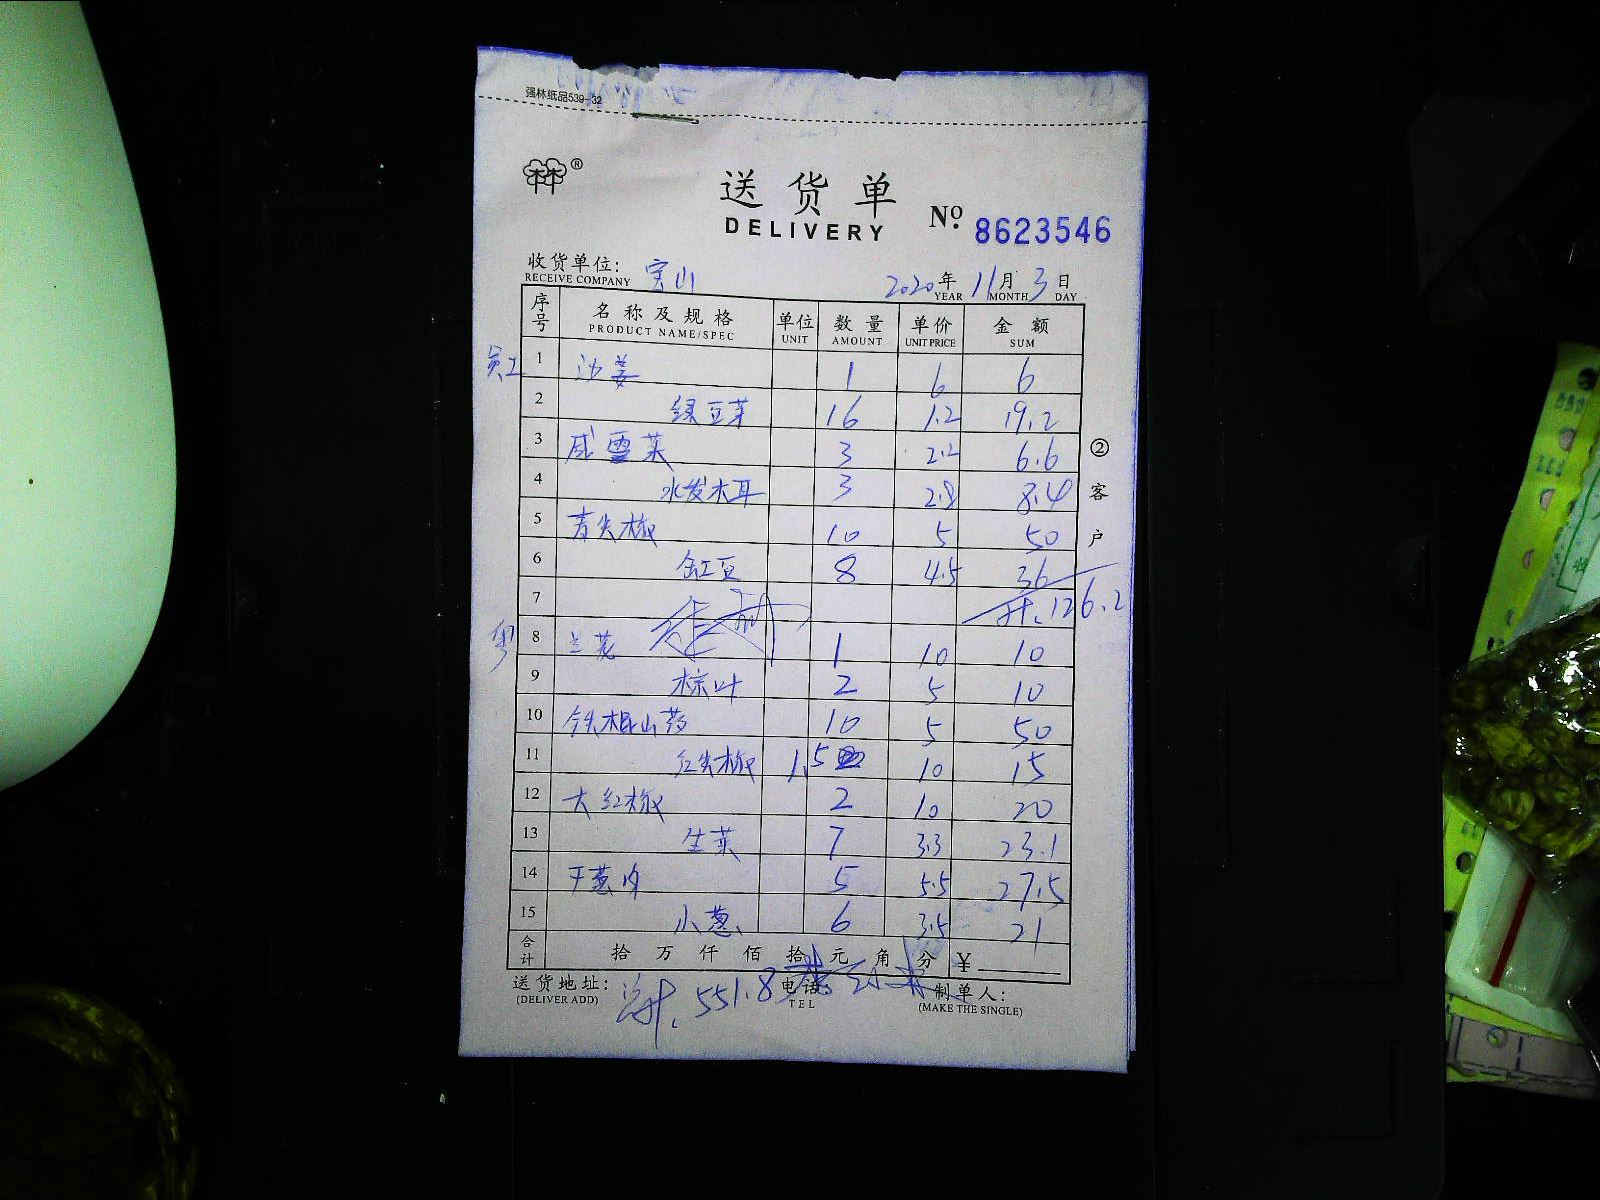 强林纸品539-32
林®
送货单
DELIVERY
№ 8623546
收货单位: 宝山 2020年 11月 3日
RECEIVE COMPANY YEAR MONTH DAY
序号 名称及规格 单位 数量 单价 金额
PRODUCT NAME/SPEC UNIT AMOUNT UNIT PRICE SUM
员工 1 沙姜 1 6 6
2 绿豆芽 16 1.2 19.2
3 咸雪菜 3 2.2 6.6
4 水发木耳 3 2.8 8.4
5 青尖椒 10 5 50
6 缸豆 8 4.5 36
7 计.126.2
粤 8 兰花 1 10 10
9 棕叶 2 5 10
10 铁棍山药 10 5 50
11 红尖椒 1.5 10 15
12 大红椒 2 10 20
13 生菜 7 3.3 23.1
14 干葱肉 5 5.5 27.5
15 小葱 6 3.5 21
合计 拾 万 仟 佰 拾 元 角 分 ¥
送货地址: 电话: 制单人:
(DELIVER ADD) TEL (MAKE THE SINGLE)
计.551.8
②客户